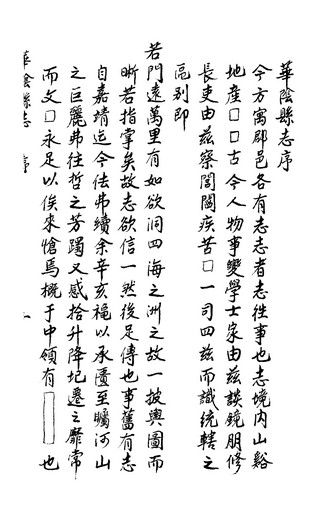 華陰縣志序
今方寓郡邑各有志志者志徃事也志境内山谿
地產□□古今人物事變學士家由兹談鏡朋修
長吏由兹察閭閻疾苦□一司四兹而識統轄之
區别即
若門遠萬里有如欲洞四海之洲之故一披輿圖而
晰若指掌矣故志欲信一然後足傳也事舊有志
自嘉靖迄今佉弗續余辛亥龝以承匱至矚河山
之巨麗弗往哲之芳躅又感拾升降圮遷之靡常
而文□永足以俟來愴焉概于中領有 也
華陰縣志 序 一